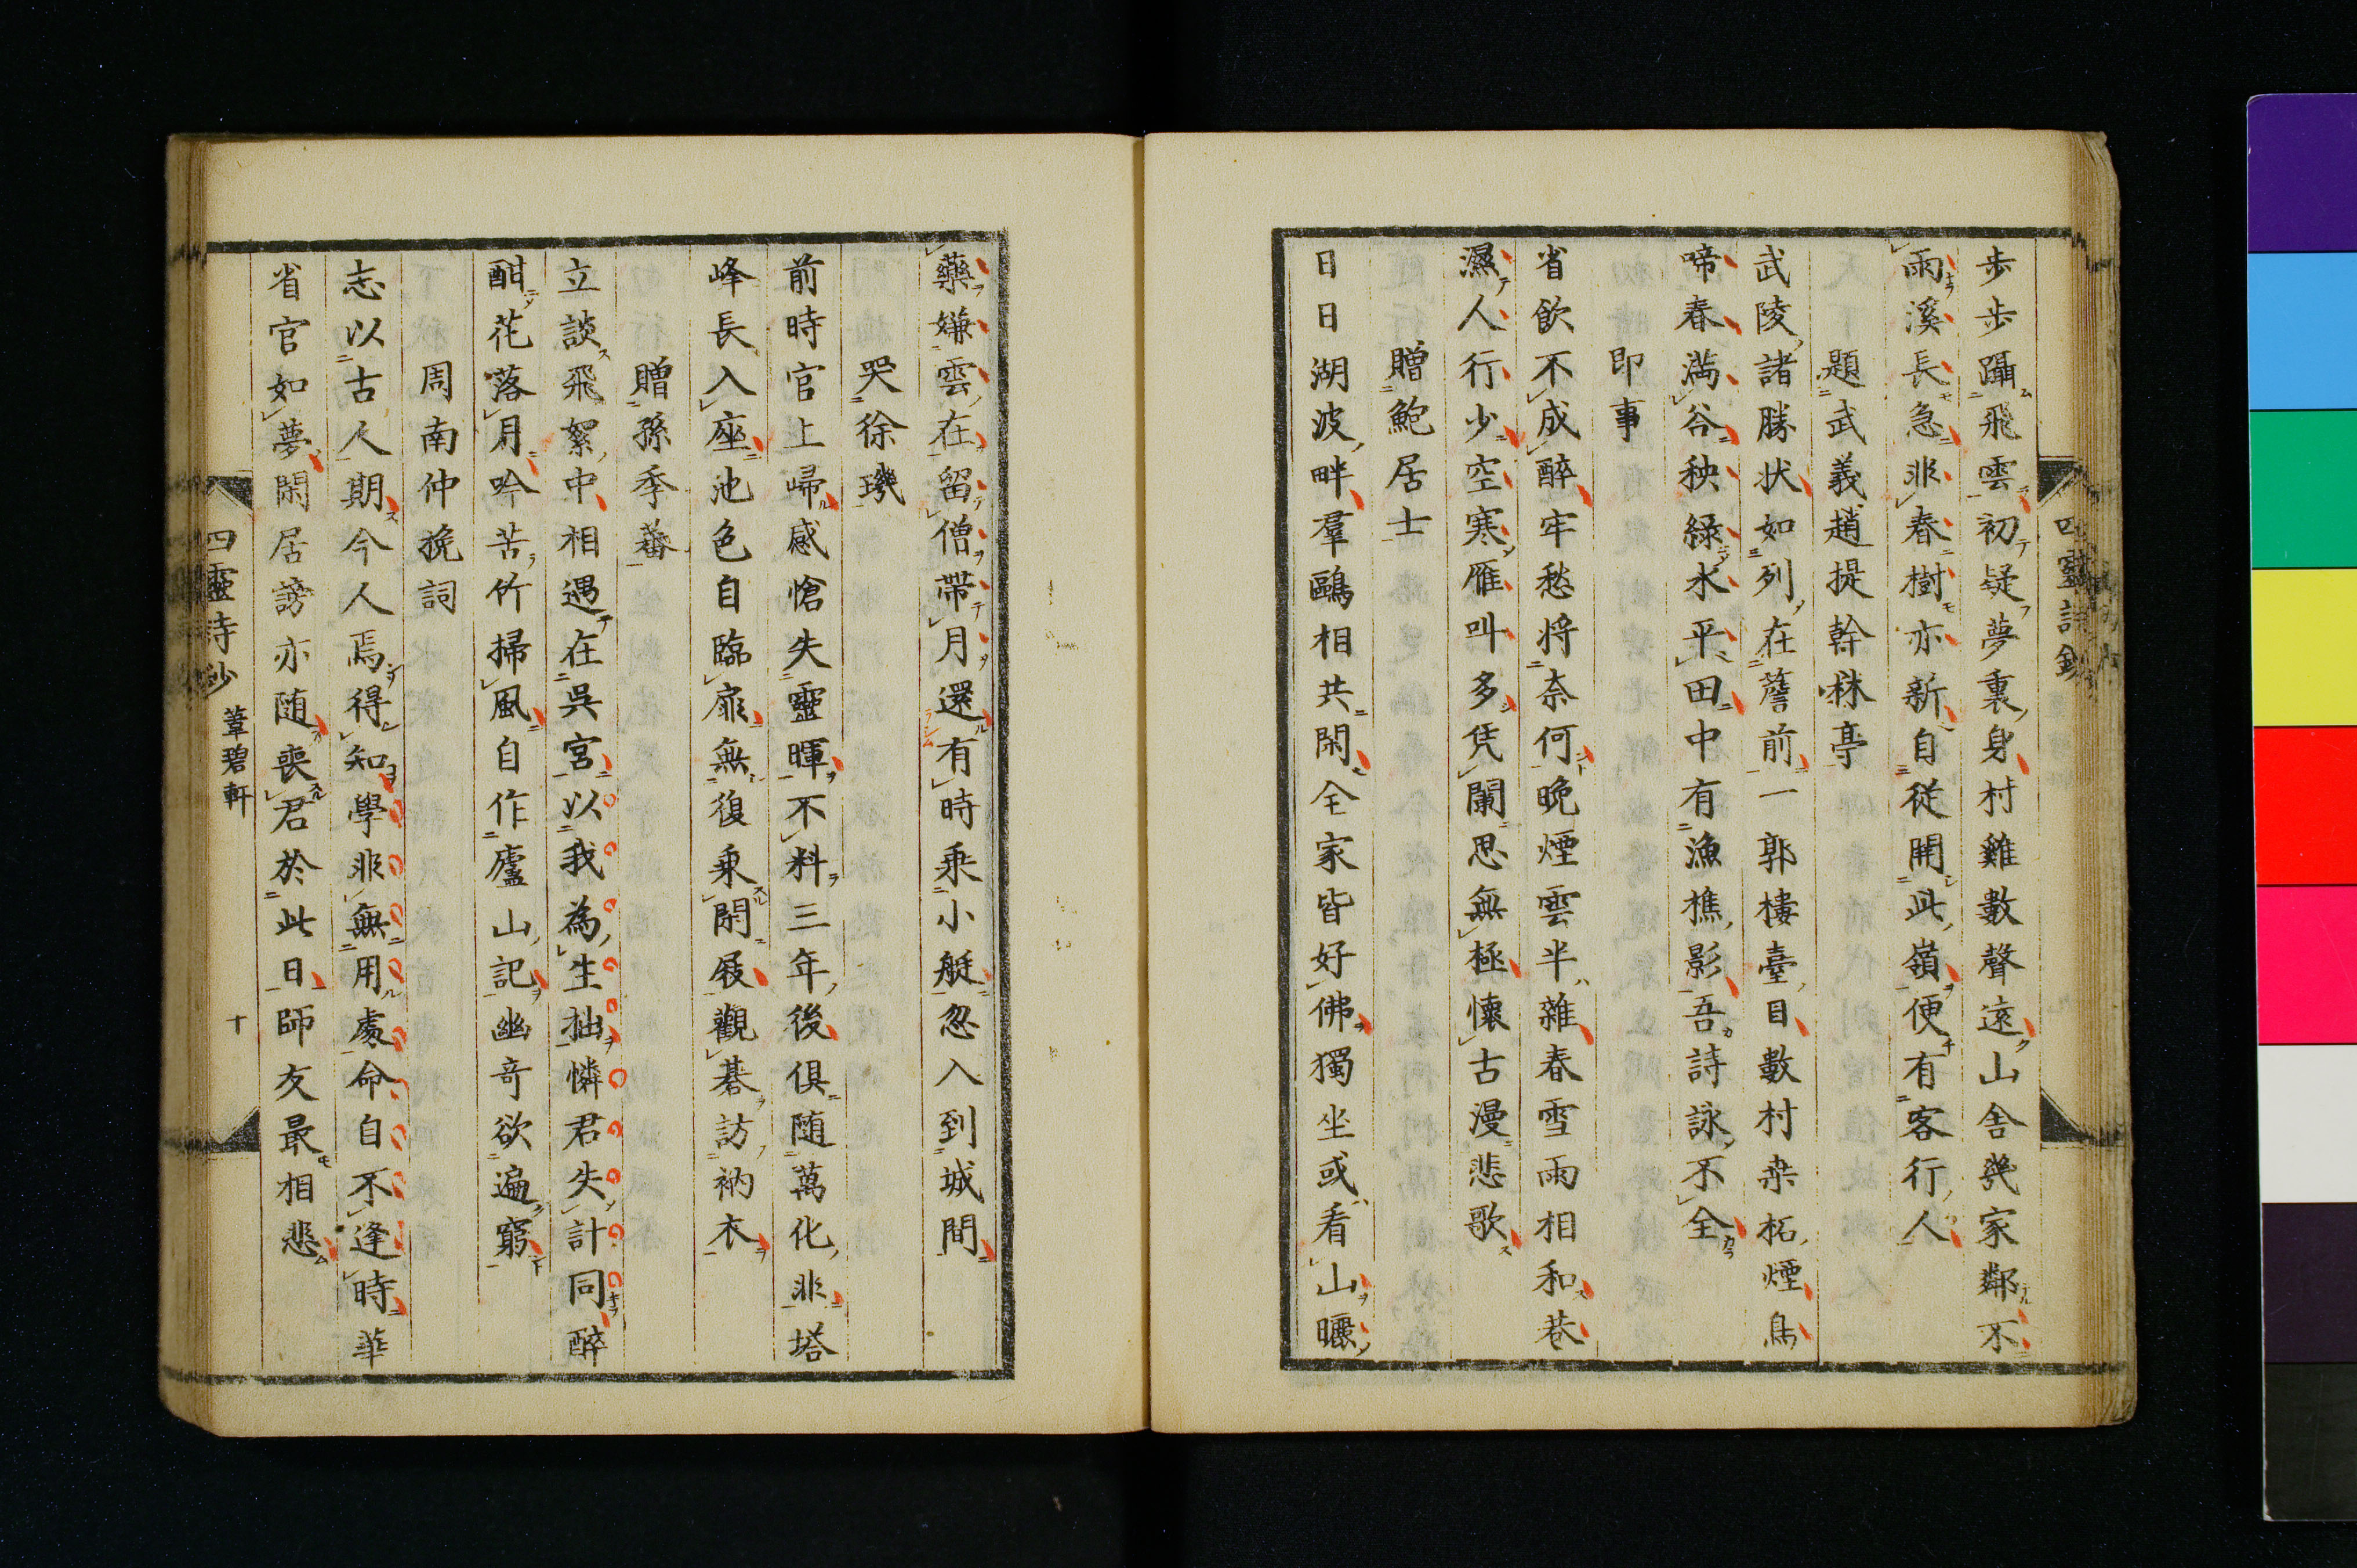 四靈詩鈔
步步躡飛雲初疑夢裏身村雞數聲遠山舍幾家鄰不
雨溪長急非春樹亦新自從開此嶺便有客行人
題武義趙提幹林亭
武陵諸勝状如列在簷前一郭樓臺目數村桒柘煙鳥
啼春満谷秧緑水平田中有漁樵影吾詩詠不全
即事
省飲不成醉牢愁将奈何晚煙雲半雜春雪雨相和巷
濕人行少空寒雁叫多凭闌思無極懐古漫悲歌
贈鮑居士
日日湖波畔羣鷗相共閑全家皆好佛獨坐或看山曬
藥嫌雲在留僧帶月還有時乗小艇忽入到城間
哭徐璣
前時官上歸感愴失靈暉不料三年後俱随萬化非塔
峰長入座池色自臨扉無復乗閑展觀碁訪衲衣
贈孫季蕃
立談飛絮中相遇在吳宮以我為生拙憐君失計同醉
酣花落月吟苦竹掃風自作廬山記幽奇欲遍窮
周南仲挽詞
志以古人期今人焉得知學非無用處命自不逢時華
省官如夢閑居謗亦随喪君於此日師友最相悲
四靈詩鈔 葦碧軒 十